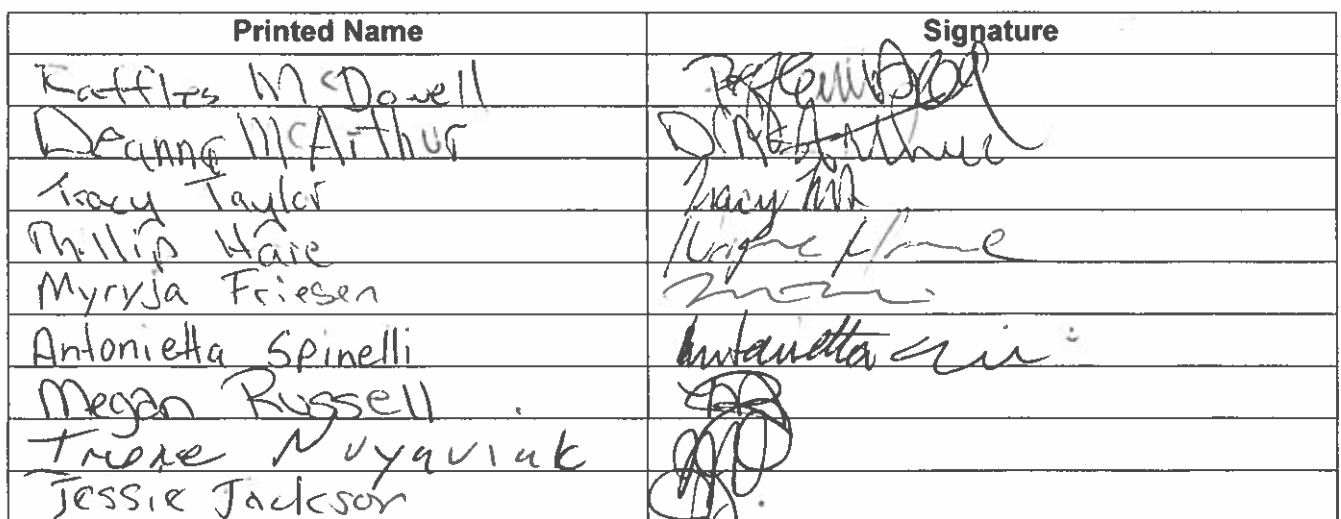 Printed Name Signature
Raffles McDowell
Deanna McArthur D. McArthur
Tracy Taylor Tracy
Phillip Hare
Myryja Friesen
Antonietta Spinelli Antonietta
Megan Russell
Irene Nuyaviak
Jessie Jackson